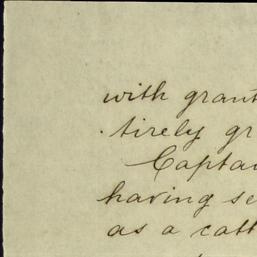 with grant
tirely gr
Captai
having se
as a catt